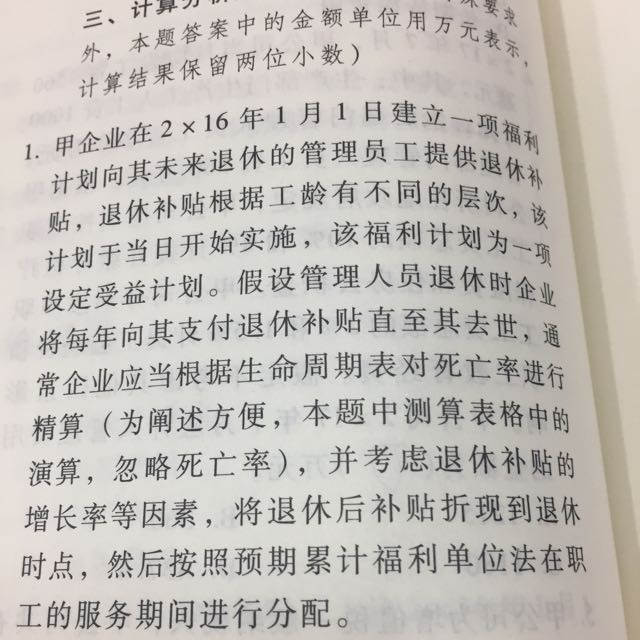 三、计算分析
外，本题答案中的金额单位用万元表示，
计算结果保留两位小数）
1. 甲企业在2×16年1月1日建立一项福利
计划向其未来退休的管理员工提供退休补
贴，退休补贴根据工龄有不同的层次，该
计划于当日开始实施，该福利计划为一项
设定受益计划。假设管理人员退休时企业
将每年向其支付退休补贴直至其去世，通
常企业应当根据生命周期表对死亡率进行
精算（为阐述方便，本题中测算表格中的
演算，忽略死亡率），并考虑退休补贴的
增长率等因素，将退休后补贴折现到退休
时点，然后按照预期累计福利单位法在职
工的服务期间进行分配。